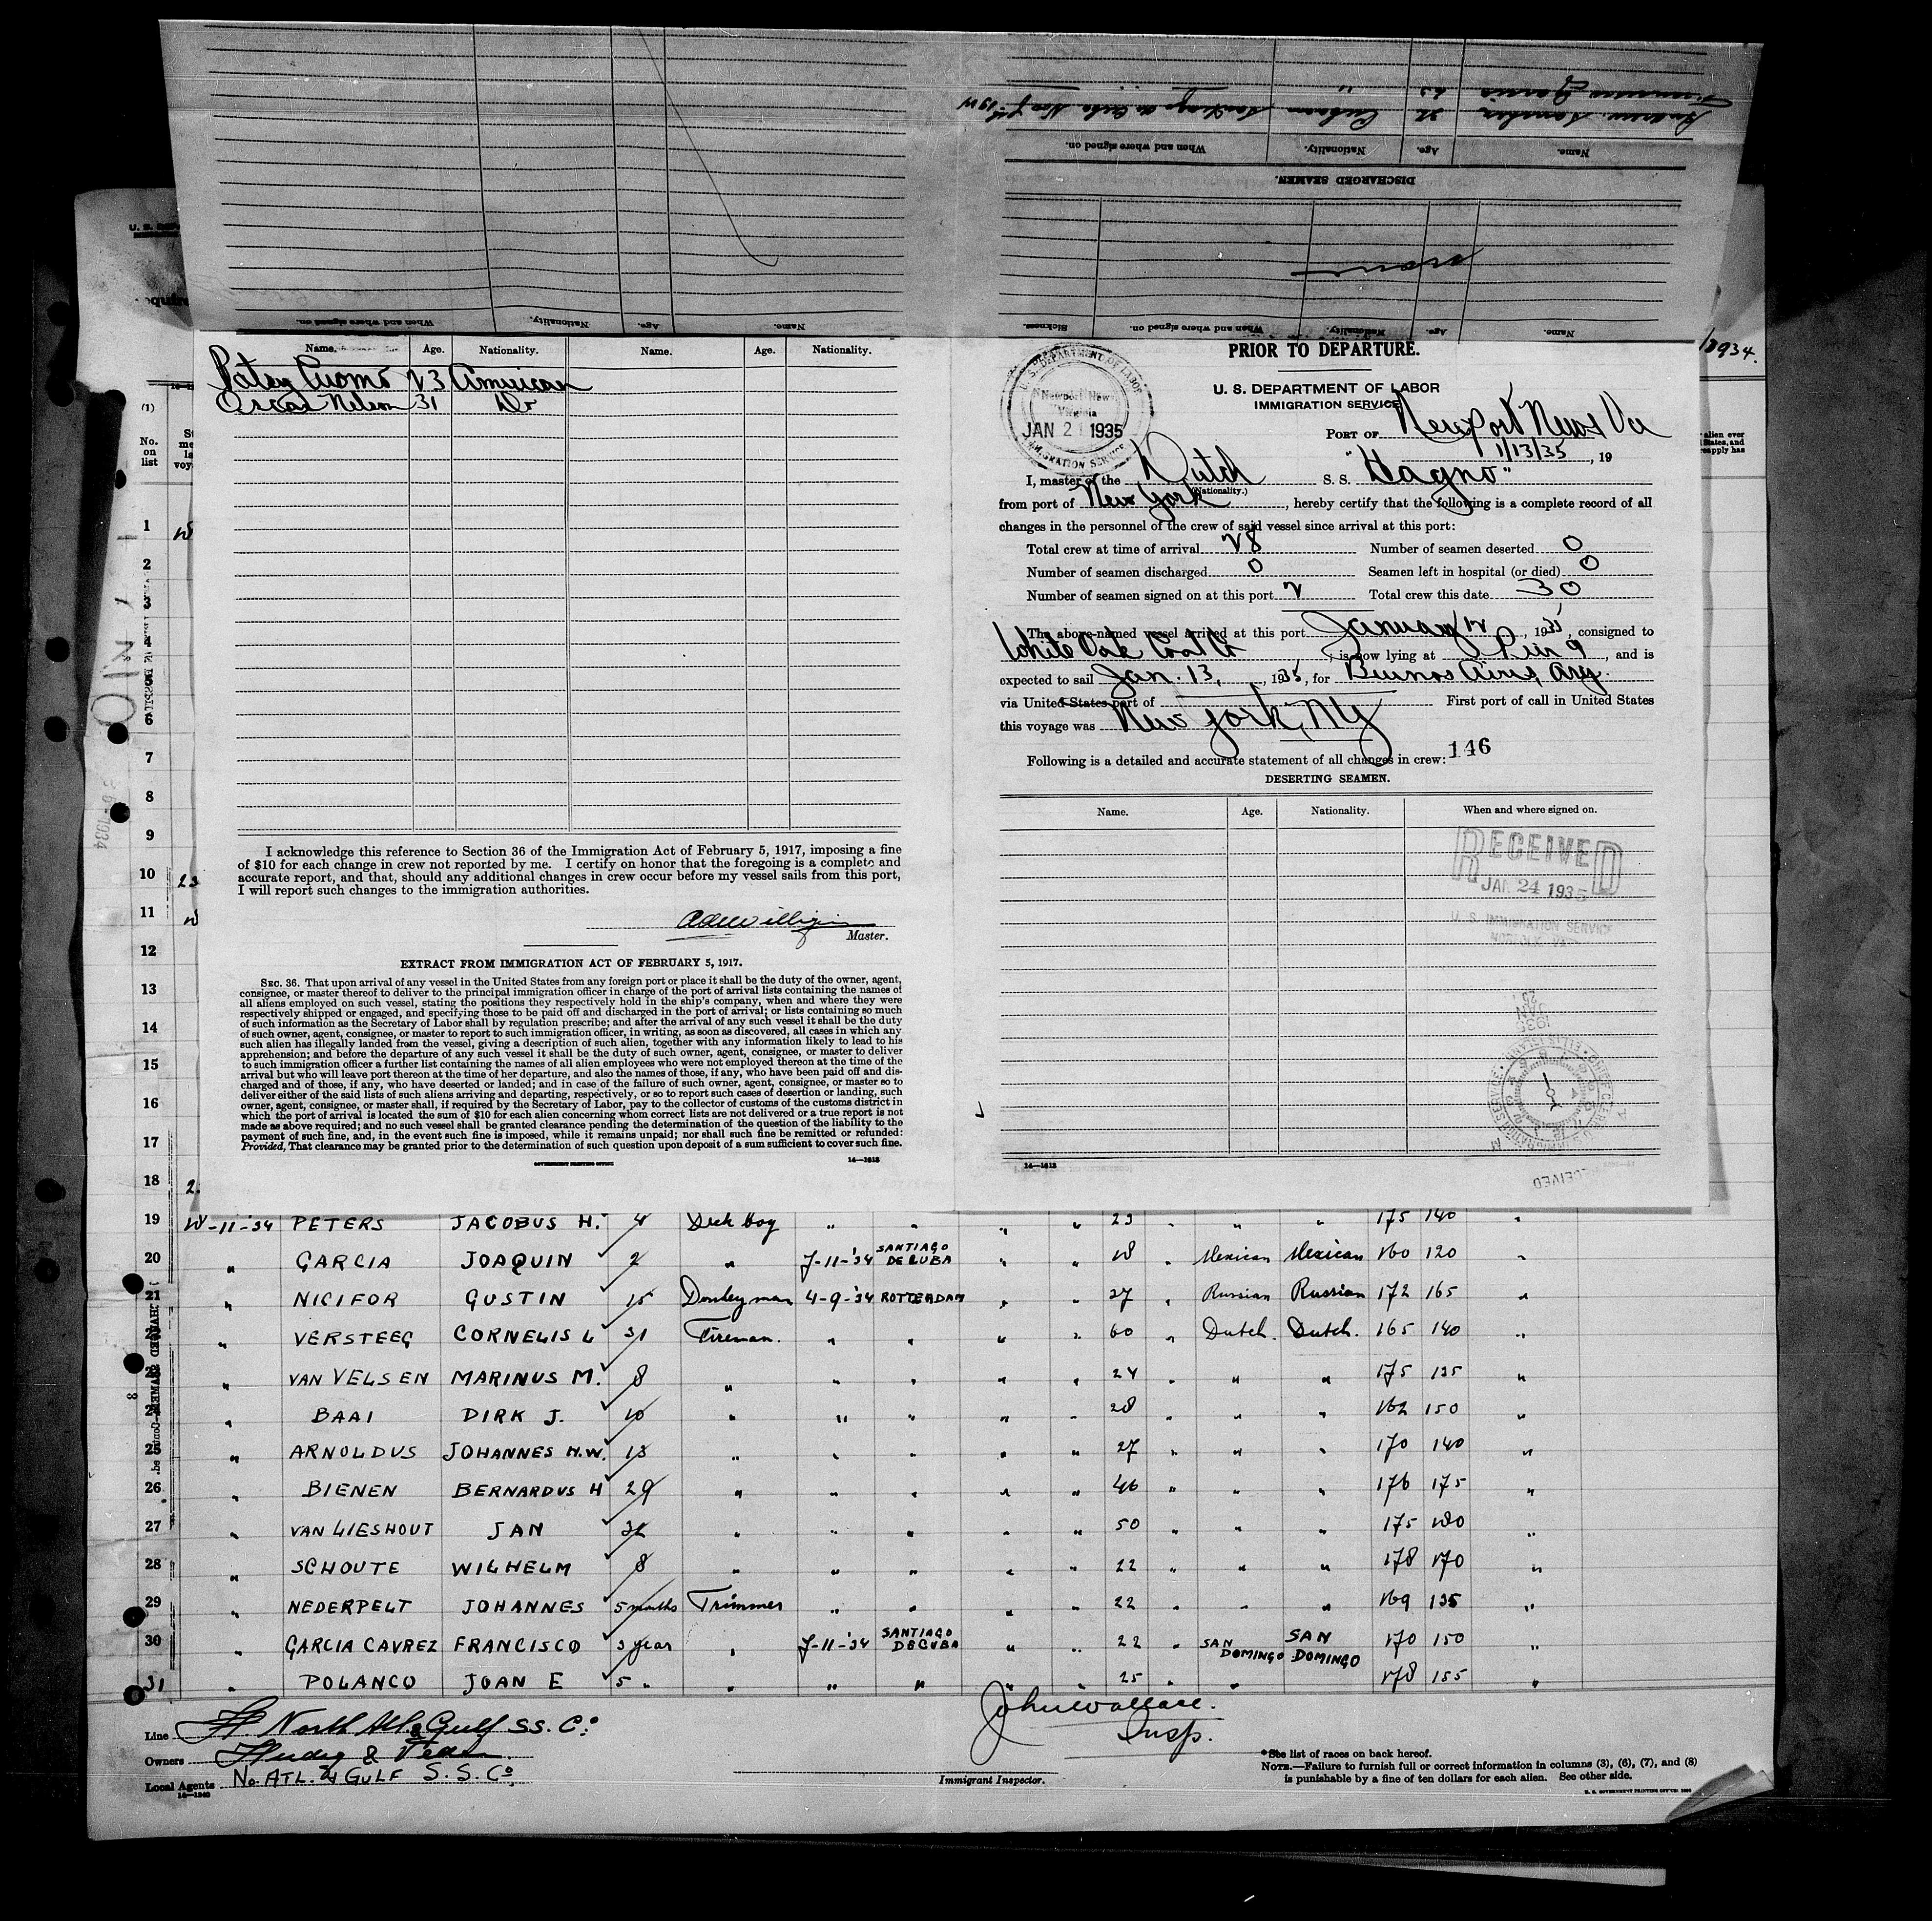 DISCHARGED SEAMEN.
Name. Age. Nationality. When and where signed on.
Name. Age. Nationality. When and where signed on.
Name. Age. Nationality. When and where signed on. Sickness.
1934.
Name. Age. Nationality. Name. Age. Nationality.
Patsy Cuomo 23 American
Oscar Nelson 31 Do
I acknowledge this reference to Section 36 of the Immigration Act of February 5, 1917, imposing a fine
of $10 for each change in crew not reported by me. I certify on honor that the foregoing is a complete and
accurate report, and that, should any additional changes in crew occur before my vessel sails from this port,
I will report such changes to the immigration authorities.
Master.
EXTRACT FROM IMMIGRATION ACT OF FEBRUARY 5, 1917.
SEC. 36. That upon arrival of any vessel in the United States from any foreign port or place it shall be the duty of the owner, agent,
consignee, or master thereof to deliver to the principal immigration officer in charge of the port of arrival lists containing the names of
all aliens employed on such vessel, stating the positions they respectively hold in the ship's company, when and where they were
respectively shipped or engaged, and specifying those to be paid off and discharged in the port of arrival; or lists containing so much
of such information as the Secretary of Labor shall by regulation prescribe; and after the arrival of any such vessel it shall be the duty
of such owner, agent, consignee, or master to report to such immigration officer, in writing, as soon as discovered, all cases in which any
such alien has illegally landed from the vessel, giving a description of such alien, together with any information likely to lead to his
apprehension; and before the departure of any such vessel it shall be the duty of such owner, agent, consignee, or master to deliver
to such immigration officer a further list containing the names of all alien employees who were not employed thereon at the time of the
arrival but who will leave port thereon at the time of her departure, and also the names of those, if any, who have been paid off and dis-
charged and of those, if any, who have deserted or landed; and in case of the failure of such owner, agent, consignee, or master so to
deliver either of the said lists of such aliens arriving and departing, respectively, or so to report such cases of desertion or landing, such
owner, agent, consignee, or master shall, if required by the Secretary of Labor, pay to the collector of customs of the customs district in
which the port of arrival is located the sum of $10 for each alien concerning whom correct lists are not delivered or a true report is not
made as above required; and no such vessel shall be granted clearance pending the determination of the question of the liability to the
payment of such fine, and, in the event such fine is imposed, while it remains unpaid; nor shall such fine be remitted or refunded:
Provided, That clearance may be granted prior to the determination of such question upon deposit of a sum sufficient to cover such fine.
GOVERNMENT PRINTING OFFICE 14—1613
PRIOR TO DEPARTURE.
U. S. DEPARTMENT OF LABOR
IMMIGRATION SERVICE
U. S. DEPARTMENT OF LABOR
Newport News
Virginia
JAN 21 1935
IMMIGRATION SERVICE
PORT OF Newport News Va
1/13/35, 19
I, master of the Dutch S. S. "Hagno"
(Nationality.)
from port of New York, hereby certify that the following is a complete record of all
changes in the personnel of the crew of said vessel since arrival at this port:
Total crew at time of arrival 28 Number of seamen deserted 0
Number of seamen discharged 0 Seamen left in hospital (or died) 0
Number of seamen signed on at this port 2 Total crew this date 30
The above-named vessel arrived at this port January 12, 1935, consigned to
White Oak Coal Co, is now lying at Pier 9, and is
expected to sail Jan. 13, 1935, for Buenos Aires Arg.
via United States port of First port of call in United States
this voyage was New York, NY
Following is a detailed and accurate statement of all changes in crew: 146
DESERTING SEAMEN.
Name. Age. Nationality. When and where signed on.
RECEIVED
JAN 24 1935
U. S. IMMIGRATION SERVICE
NORFOLK, VA.
14—1613
(1)
No. on list
1
2
3
4
5
6
7
8
9
10
11
12
13
14
15
16
17
18
19 -11-34 PETERS JACOBUS H. 4 Deck boy " " " " 23 " " " 175 140 "
20 " GARCIA JOAQUIN 2 " 7-11-'34 SANTIAGO DE CUBA " " 18 " Mexican Mexican 160 120 "
21 " NICIFOR GUSTIN 15 Donkeyman 4-9-'34 ROTTERDAM " " 27 " Russian Russian 172 165 "
22 " VERSTEEG CORNELIS L 31 Fireman. " " " " 60 " Dutch. Dutch. 165 140 "
23 " VAN VELSEN MARINUS M. 8 " " " " " 24 " " " 175 135 "
24 " BAAI DIRK J. 10 " " " " " 28 " " " 162 150 "
25 " ARNOLDUS JOHANNES H.W. 13 " " " " " 27 " " " 170 140 "
26 " BIENEN BERNARDUS H 29 " " " " " 46 " " " 176 175 "
27 " VAN LIESHOUT JAN 32 " " " " " 50 " " " 175 180 "
28 " SCHOUTE WILHELM 8 " " " " " 22 " " " 178 170 "
29 " NEDERPELT JOHANNES 5 months Trimmer " " " " 22 " " " 169 135 "
30 " GARCIA CAVREZ FRANCISCO 3 year " 7-11-34 SANTIAGO DE CUBA " " 22 " SAN DOMINGO SAN DOMINGO 170 150 "
31 " POLANCO JOAN E 5 " " " " " " 25 " " " 178 155 "
Line North Atl & Gulf SS. Co.
Owners
Local Agents No. ATL. & GULF S. S. Co.
John Wallace.
Insp.
Immigrant Inspector.
*See list of races on back hereof.
NOTE.—Failure to furnish full or correct information in columns (3), (6), (7), and (8)
is punishable by a fine of ten dollars for each alien. See other side.
14—1240